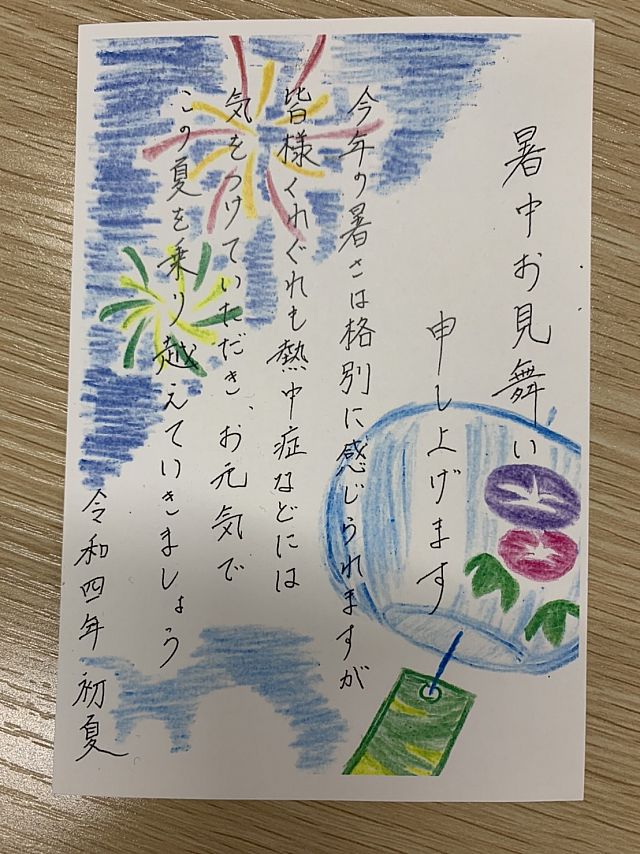 暑中お見舞い
申し上げます
今年の暑さは格別に感じられますが
皆様くれぐれも熱中症などには
気をつけていただき、お元気で
この夏を乗り越えていきましょう
令和四年 初夏